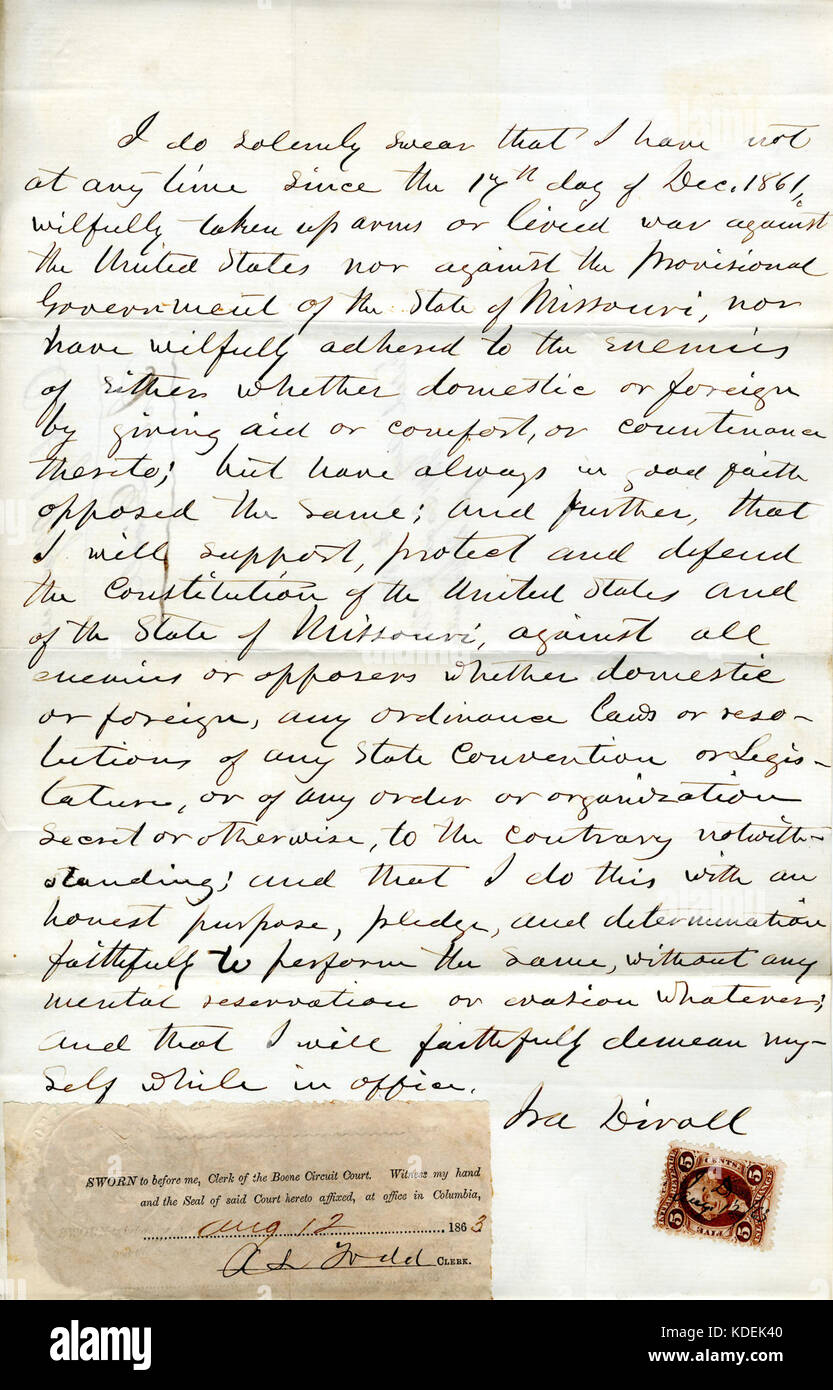 I do solemnly swear that I have not
at any time since the 17th day of Dec. 1861,
wilfully taken up arms or levied war against
the United States nor against the Provisional
Government of the State of Missouri, nor
have wilfully adhered to the enemies
of either whether domestic or foreign
by giving aid or comfort, or countenance
thereto; but have always in good faith
opposed the same; and further, that
I will support, protect and defend
the Constitution of the United States and
of the State of Missouri, against all
enemies or opposers whether domestic
or foreign, any ordinance laws or reso-
lutions of any State Convention or Legis-
lature, or of any order or organization
secret or otherwise, to the contrary notwith-
standing; and that I do this with an
honest purpose, pledge, and determination
faithfully to perform the same, without any
mental reservation or evasion whatever;
and that I will faithfully demean my-
self while in office.
Ira Divoll
SWORN to before me, Clerk of the Boone Circuit Court. Witness my hand
and the Seal of said Court hereto affixed, at office in Columbia,
Aug 12 1863
A S Todd CLERK.
5 CENTS 5
5 FIVE 5
alamy
Image ID: KDEK40
www.alamy.com